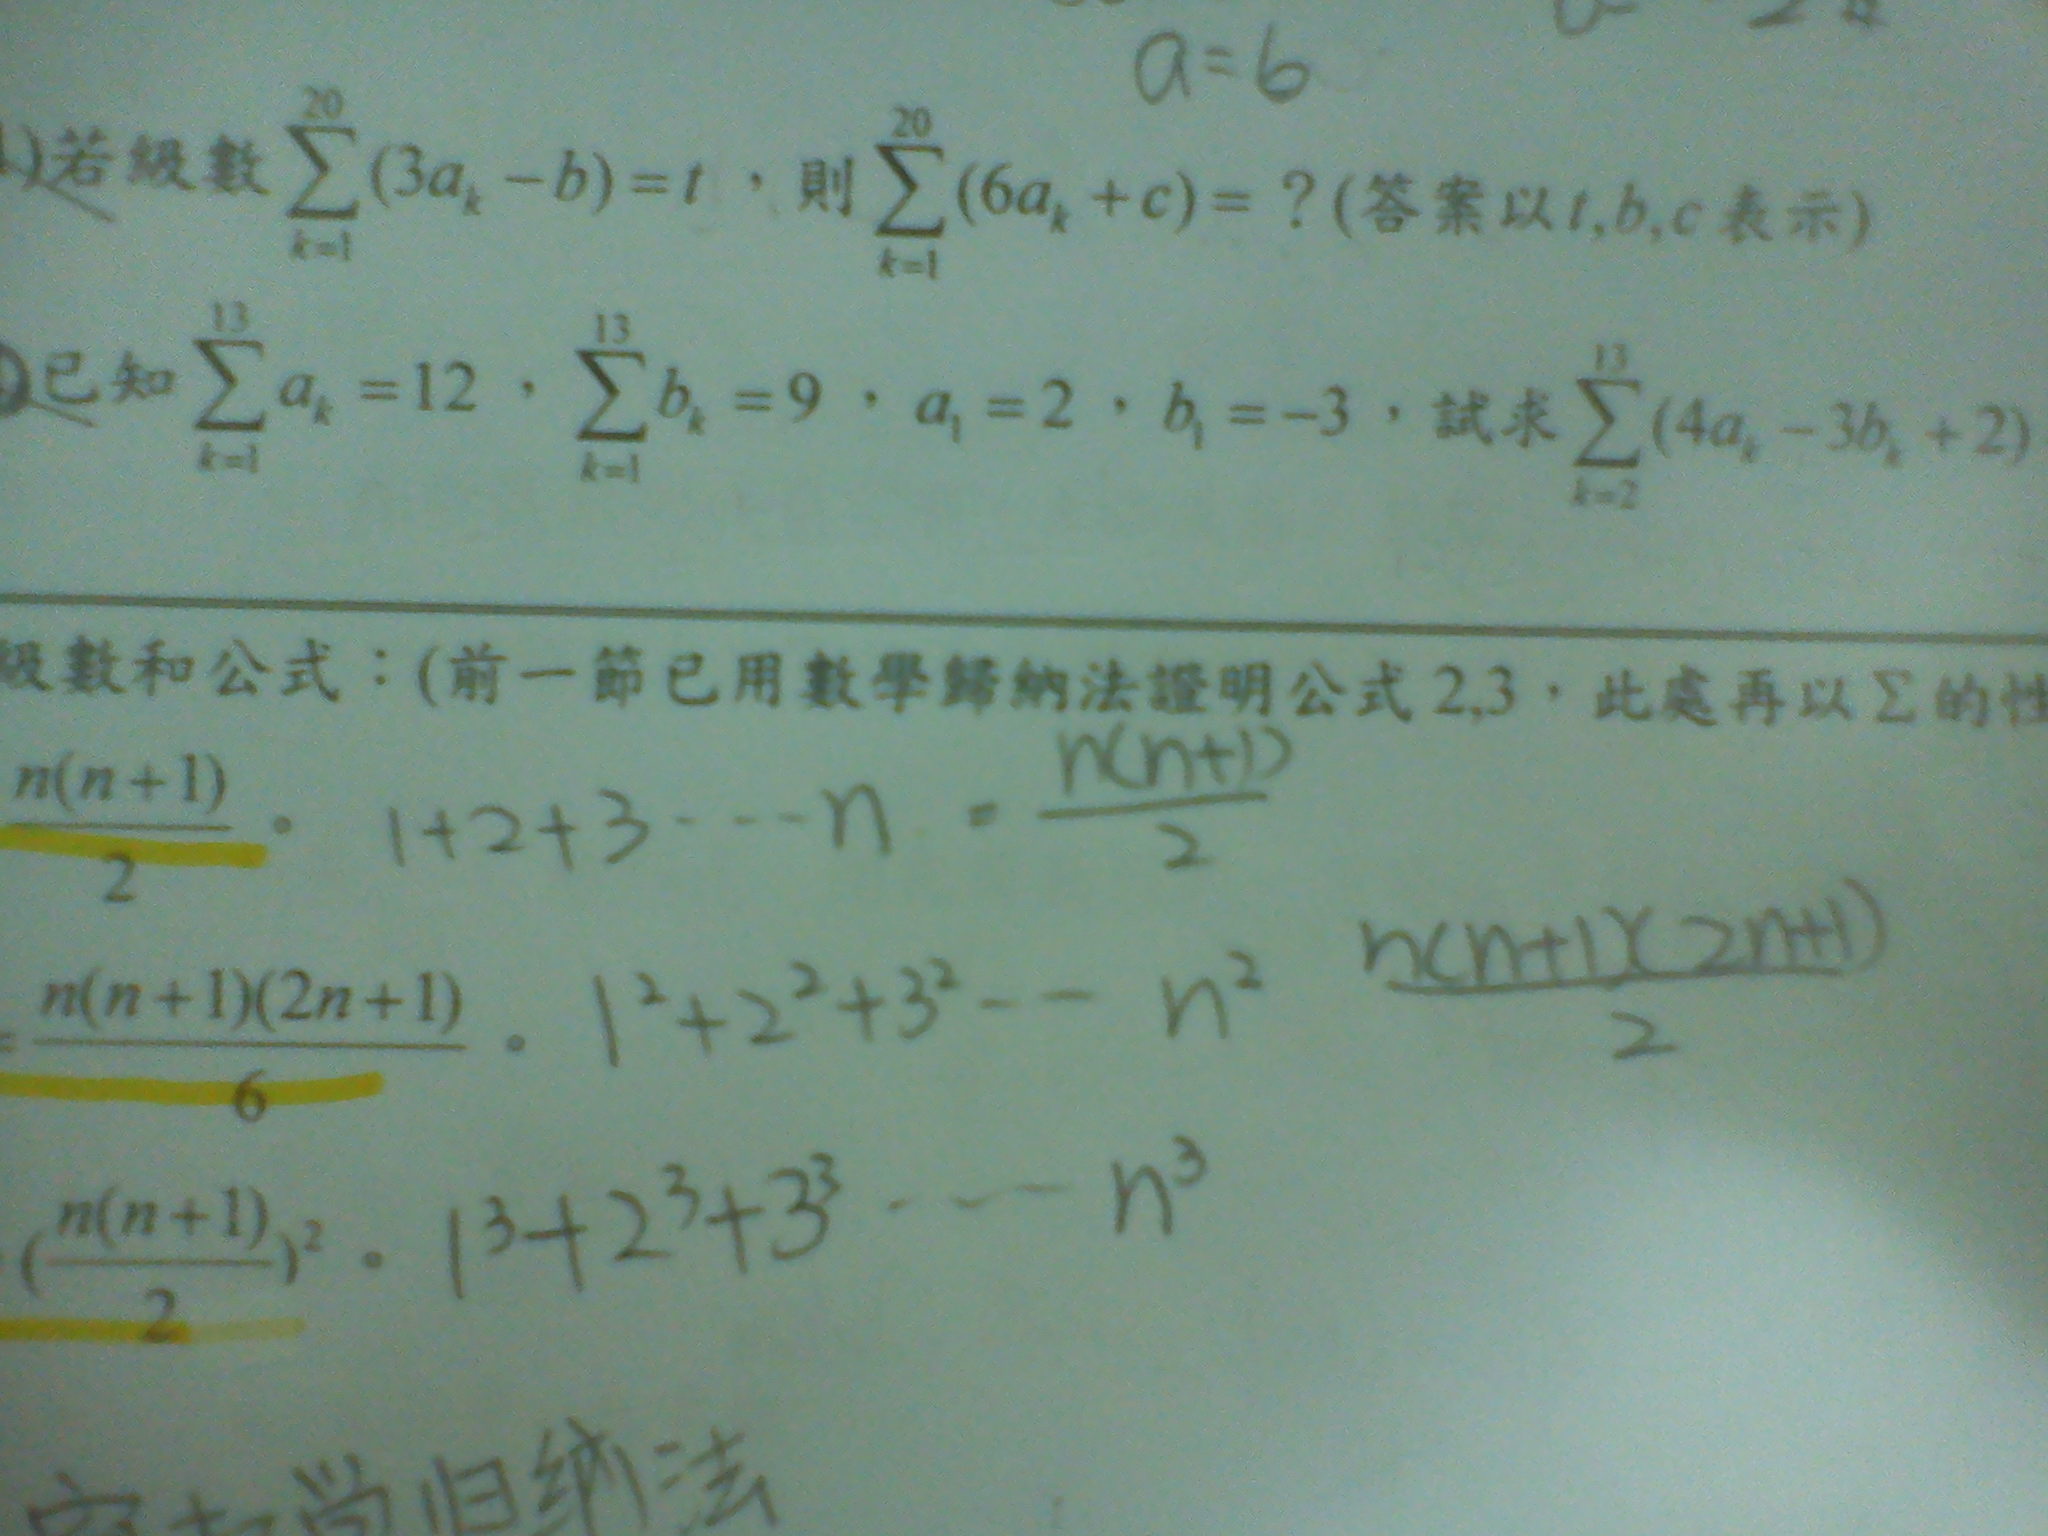 a=b
1)若級數 \sum_{k=1}^{20}(3a_k-b)=t，則 \sum_{k=1}^{20}(6a_k+c)=？(答案以t,b,c表示)
已知 \sum_{k=1}^{13}a_k=12，\sum_{k=1}^{13}b_k=9，a_1=2，b_1=-3，試求 \sum_{k=2}^{13}(4a_k-3b_k+2)
級數和公式：(前一節已用數學歸納法證明公式2,3，此處再以Σ的性
\frac{n(n+1)}{2}。 1+2+3----n = \frac{n(n+1)}{2}
=\frac{n(n+1)(2n+1)}{6}。 1^2+2^2+3^2--- n^2 \frac{n(n+1)(2n+1)}{2}
(\frac{n(n+1)}{2})^2。 1^3+2^3+3^3 ----- n^3
归纳法